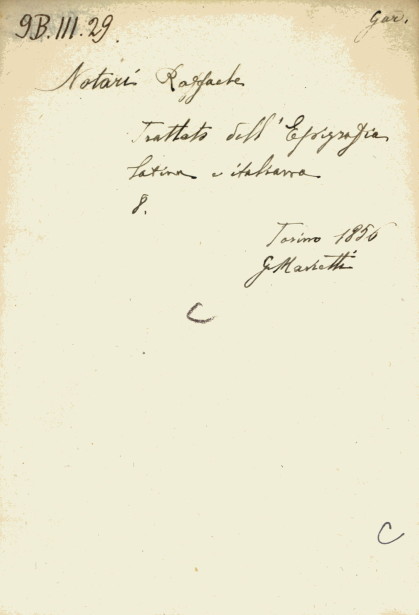 9B.III.29.
Gar.
Notari Raffaele
Trattato dell'Epigrafia
latina e italiana
8.
Torino 1856
G Marietti
C
C